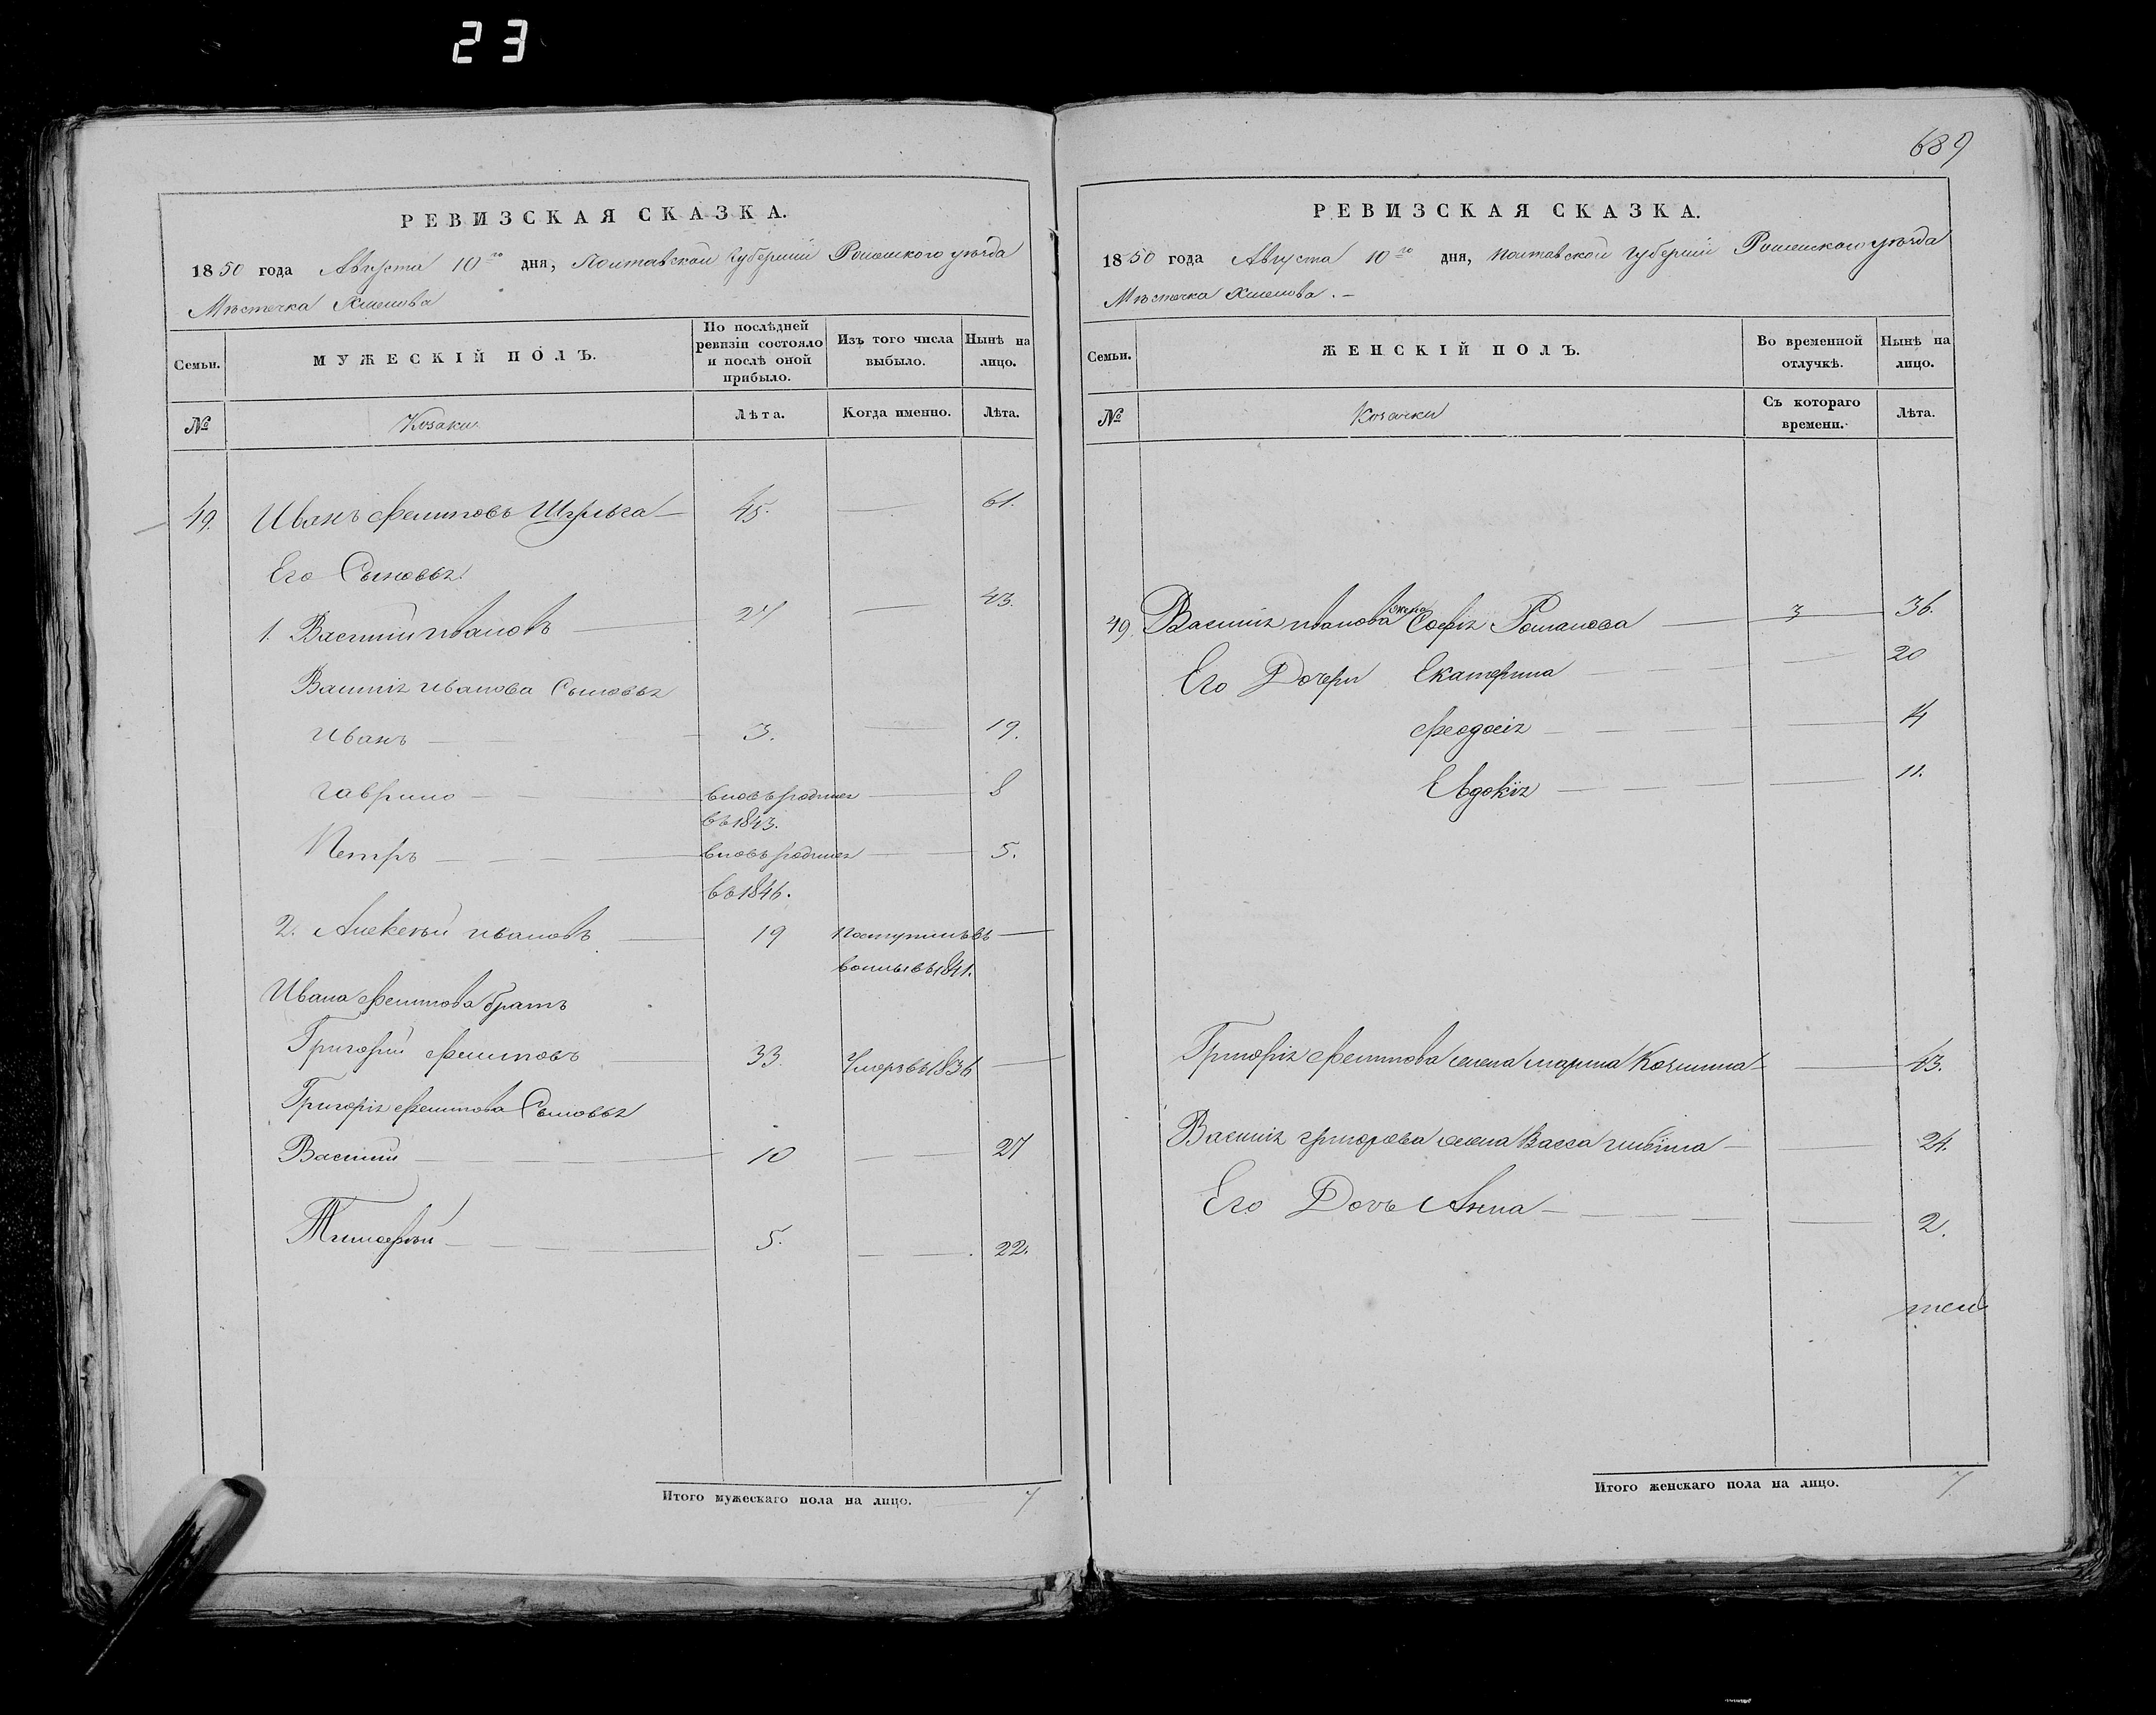 23
РЕВИЗСКАЯ СКАЗКА.
1850 года Августа 10го дня, Полтавской Губернии Роменского уѣзда
Мѣстечка Хмелова
Семьи.
МУЖЕСКІЙ ПОЛЪ.
По послѣдней ревизіи состояло и послѣ оной прибыло.
Изъ того числа выбыло.
Нынѣ на лицо.
№
Козаки
Лѣта.
Когда именно.
Лѣта.
49. Иванъ Филиповъ 45. 61.
Его Сыновья
1. Василій Ивановъ 27 43.
Василія Иванова Сыновья
Иванъ 3. 19.
Гаврило вновь родился 8
въ 1843.
Петръ вновь родился 5.
въ 1846.
2. Алексѣй Ивановъ 19 поступилъ въ
1841.
Ивана Филипова братъ
Григорій Филиповъ 33. Умеръ въ 1836
Григорія Филипова Сыновья
Василій 10 27
Тимофѣй 5. 22.
Итого мужескаго пола на лицо. 7
689
РЕВИЗСКАЯ СКАЗКА.
1850 года Августа 10го дня, Полтавской Губерніи Роменского уѣзда
Мѣстечка Хмелова.
Семьи.
ЖЕНСКІЙ ПОЛЪ.
Во временной отлучкѣ.
Нынѣ на лицо.
№
Козачки
Съ котораго времени.
Лѣта.
49. Василія Иванова жена Софія Романова 36.
Его Дочери Екатерина 20
Феодосія 14
Евдокія 11.
Григорія Филипова жена Марина 43.
Василія Григорьева жена Васса 24.
Его Дочь Анна 2.
Итого женскаго пола на лицо. 7